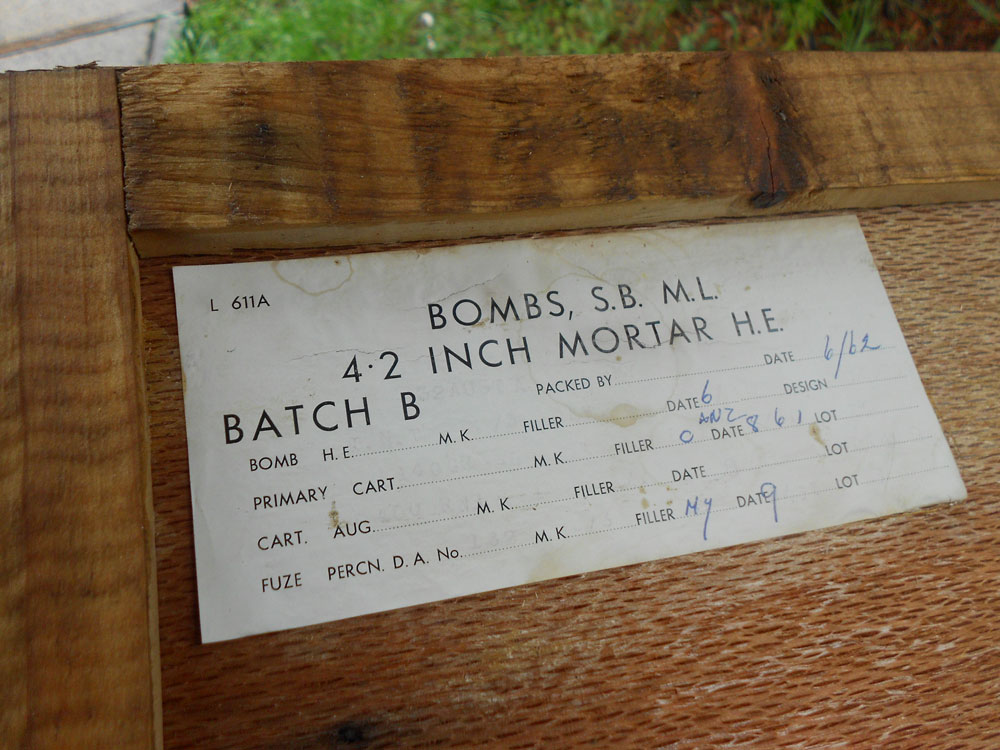 L 611A
BOMBS, S.B. M.L.
4·2 INCH MORTAR H.E.
PACKED BY DATE 6/62
BATCH B
BOMB H.E. M.K. FILLER DATE 6 DESIGN
PRIMARY CART. M.K. FILLER O DATE 8 6 1 LOT
CART. AUG. M.K. FILLER DATE LOT
FUZE PERCN. D. A. No. M.K. FILLER DATE 9 LOT